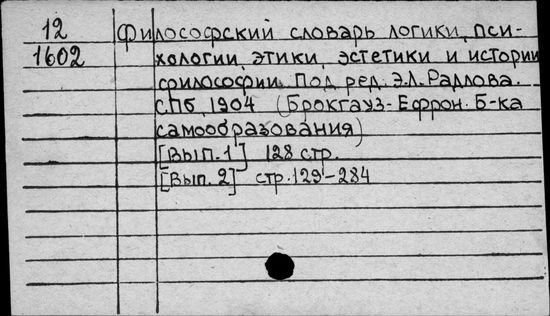 12 Философский словарь логики, пси-
1602 хологии, этики, эстетики и истории
философии. Под ред. Э.Л. Радлова.
СПб, 1904 (Брокгауз-Ефрон. Б-ка
самообразования)
[Вып.1] 128 стр.
[Вып. 2] стр. 129-284